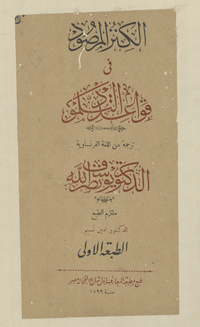 الكنز المرصود
فى
قواعد التلمود
ترجمه من اللغة الفرنساوية
الدكتور يوسف نصر الله
ملتزم الطبع
الدكتور امين نسيم
الطبعة الاولى
سنة ١٨٩٩